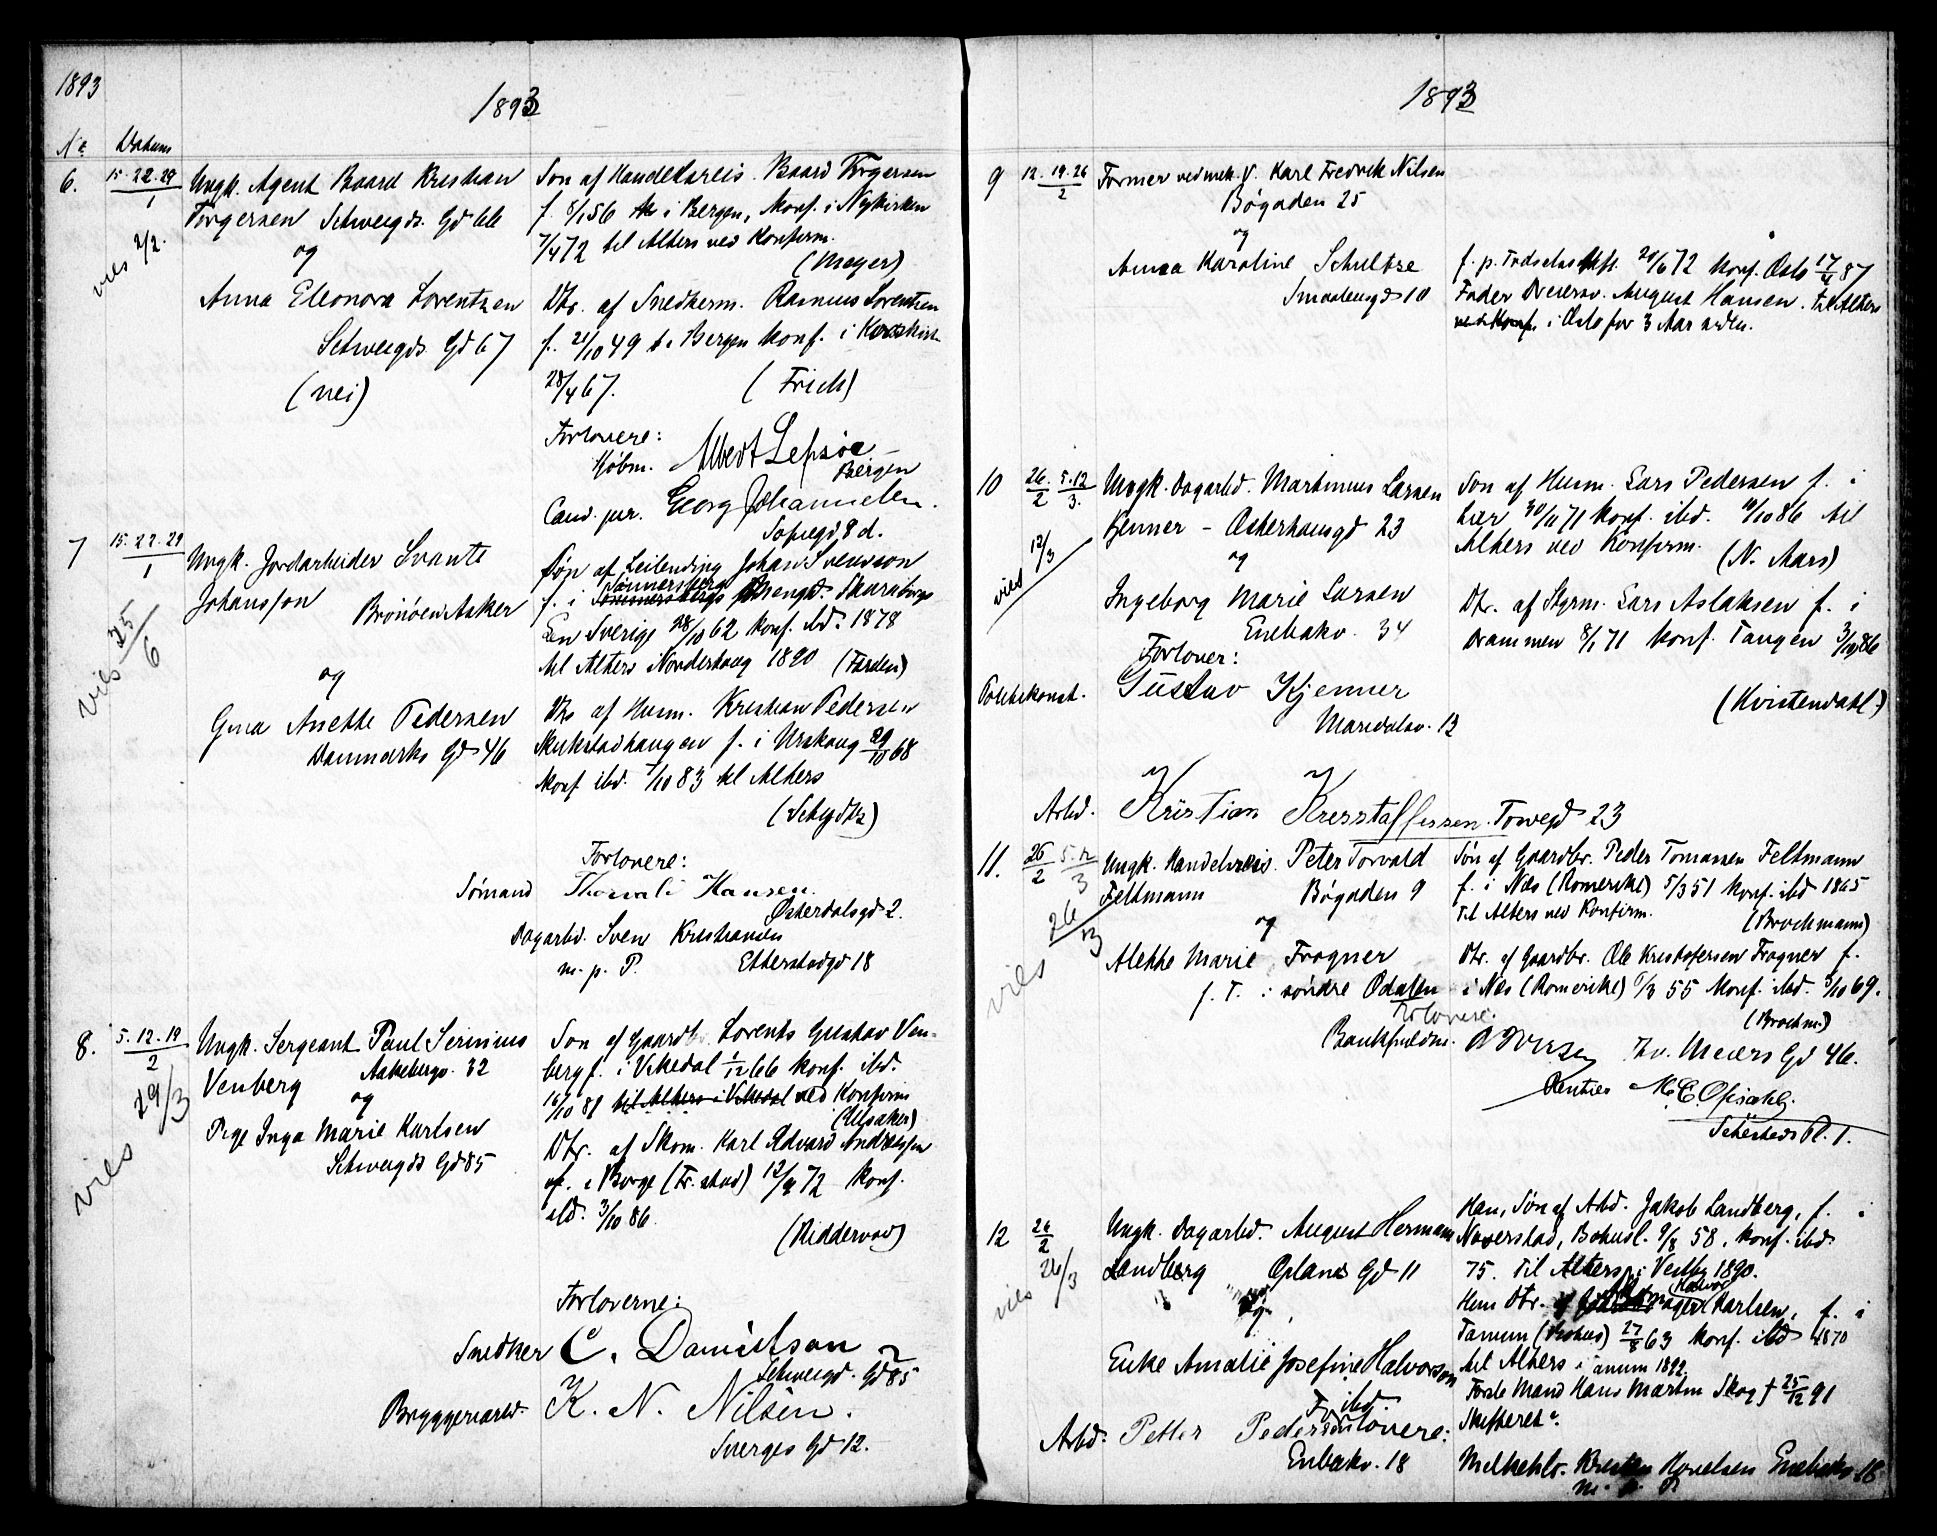 1893
1893
No Datum
6. 15. 22. 29/1 Ungk. Agent Baard Kristian
Torgersen Schweigds. Gd 66
og
viet 2/2.
Anna Eleonora Lorentzen
Schweigds. Gd 67
(nei)
Son af Handelsreis. Baard Torgersen
f. 8/1 56 i Bergen, Konf. i Nykirken
7/4 72 til Alters ved Konfirm.
(Meyer)
Dtr. af Snedkerm. Rasmus Lorentzen
f. 21/10 49 i Bergen Konf. i Korskirk.
28/4 67. (Frich)
Forlovere:
Kjøbm. Albert Lepsøe
Bergen
Cand. jur. Georg Johannesen.
Sofiegd. 8 d.
7 15. 22. 29/1 Ungk. Jordarbeider Svante
Johansson Brönöen Asker
viets 25/6
og
Gina Anette Pedersen
Danmarks Gd 46
Søn af Leilending Johan Svensson
f. i Skarabirgs
Len Sverige 28/10 62 konf. ibd. 1878
til Alters Norderhoug 1890 (Farden)
Dtr af Husm. Kristian Pedersen
f. i Urskoug 29/10 68
konf ibd. 7/10 83 til Alters
Forlovere:
Sømand Thorvald Hansen.
Østerdalsgd 2.
Dagarbd. Sven Kristiansen
m. p. P. Etterstadgd 18
8. 5. 12. 19/2 Ungk. Sergeant Paul Serinius
Venberg Aakebergv. 32
og
viels 29/3
Pige Inga Marie Karlsen
Schweigds Gd 85
Son af Gaardbr. Lorents Gustav Ven-
berg f. i Vikedal 1/12 66 konf. ibd.
16/10 81 til Alters i Vikedal ved Konfirm
Dtr. af Skom. Karl Edvard Andreassen
f. i Borge (Fr. stad) 12/4 72 Konf.
ibd. 3/10 86.
(Riddervod)
Forloverne:
Snedker C. Danielson
Schweigd. Gd 85
Bryggeriarbd. K. N. Nilsen.
Sverges Gd 12.
1893
9 12. 19. 26/2 Former ved mek. V. Karl Fredrik Nilsen
Bøgaden 25
og
Anna Karoline Schultze
Smaalensgd 10
f. p. Fødselsstift. 21/6 72 konf. Oslo 17/4 87
Fader Dreiersv. August Hansen. til Alters
i Oslo for 3 Aar siden.
10 26/2 5. 12/3. Ungk. Dagarbd. Martinius Larsen
Kjenner - Osterhausgd 23
og
viels 12/3
Ingeborg Marie Larsen
Enebakv. 34
Son af Husm. Lars Pedersen f. i
Lier 30/11 71 konf. ibd. 10/10 86 til
Alters ved Konfirm.
(N. Aars)
Dtr. af Styrm. Lars Aslaksen f. i
Drammen 8/1 71 konf. Tangen 3/10 86
(Kvistendahl.)
Forlover:
Politikonst. Gustav Kjenner
Maridalsv. 12
Arbd. Kristian Kresstaffersen. Torvegd 23
11. 26/2 5. 12/3 Ungk. Handelsreis. Peter Torvald
Feltmann Bøgaden 9
og
viels 26/3
Alette Marie Frogner
f. T. i søndre Odalen
Søn af Gaardbr. Peder Tomassen Feltmann
f. i Næs (Romerike) 5/3 51 konf. ibd 1865
til Alters ved Konfirm.
(Brochmann)
Dtr. af Gaardbr. Ole Kristofersen Frogner f.
i Næs (Romerike) 6/3 55 Konf. ibd. 3/10 69.
(Brochm.)
Forlovere:
Bankfuldm. Iversen Th. Meiers Gd 46.
Rentier M. C. Opsahl.
Sehesteds Pl. 1.
12 26/2 Ungk. Dagarbd. August Hermann
Landberg Oplands Gd 11
og
viels 26/3
Enke Amalie Josefine Halvorson
ibd.
Han, Søn af Arbd. Jakob Landberg, f. i
Naverstad, Bohusl. 9/8 58, konf. ibd
75. til Alters i Vestby 1890.
Hun Dtr. Karlsen, f. i
Tanum (Bohus) 27/8 63 konf. ibd 1870
til Alters i anum 1892
Forste Mand Hans Martin Skog † 25/12 91
Skifteret.
Forlovere:
Arbd. Petter Pedersen
Enbakv. 18
Melkehlr. Kristian Enebakv 18
m. p. P